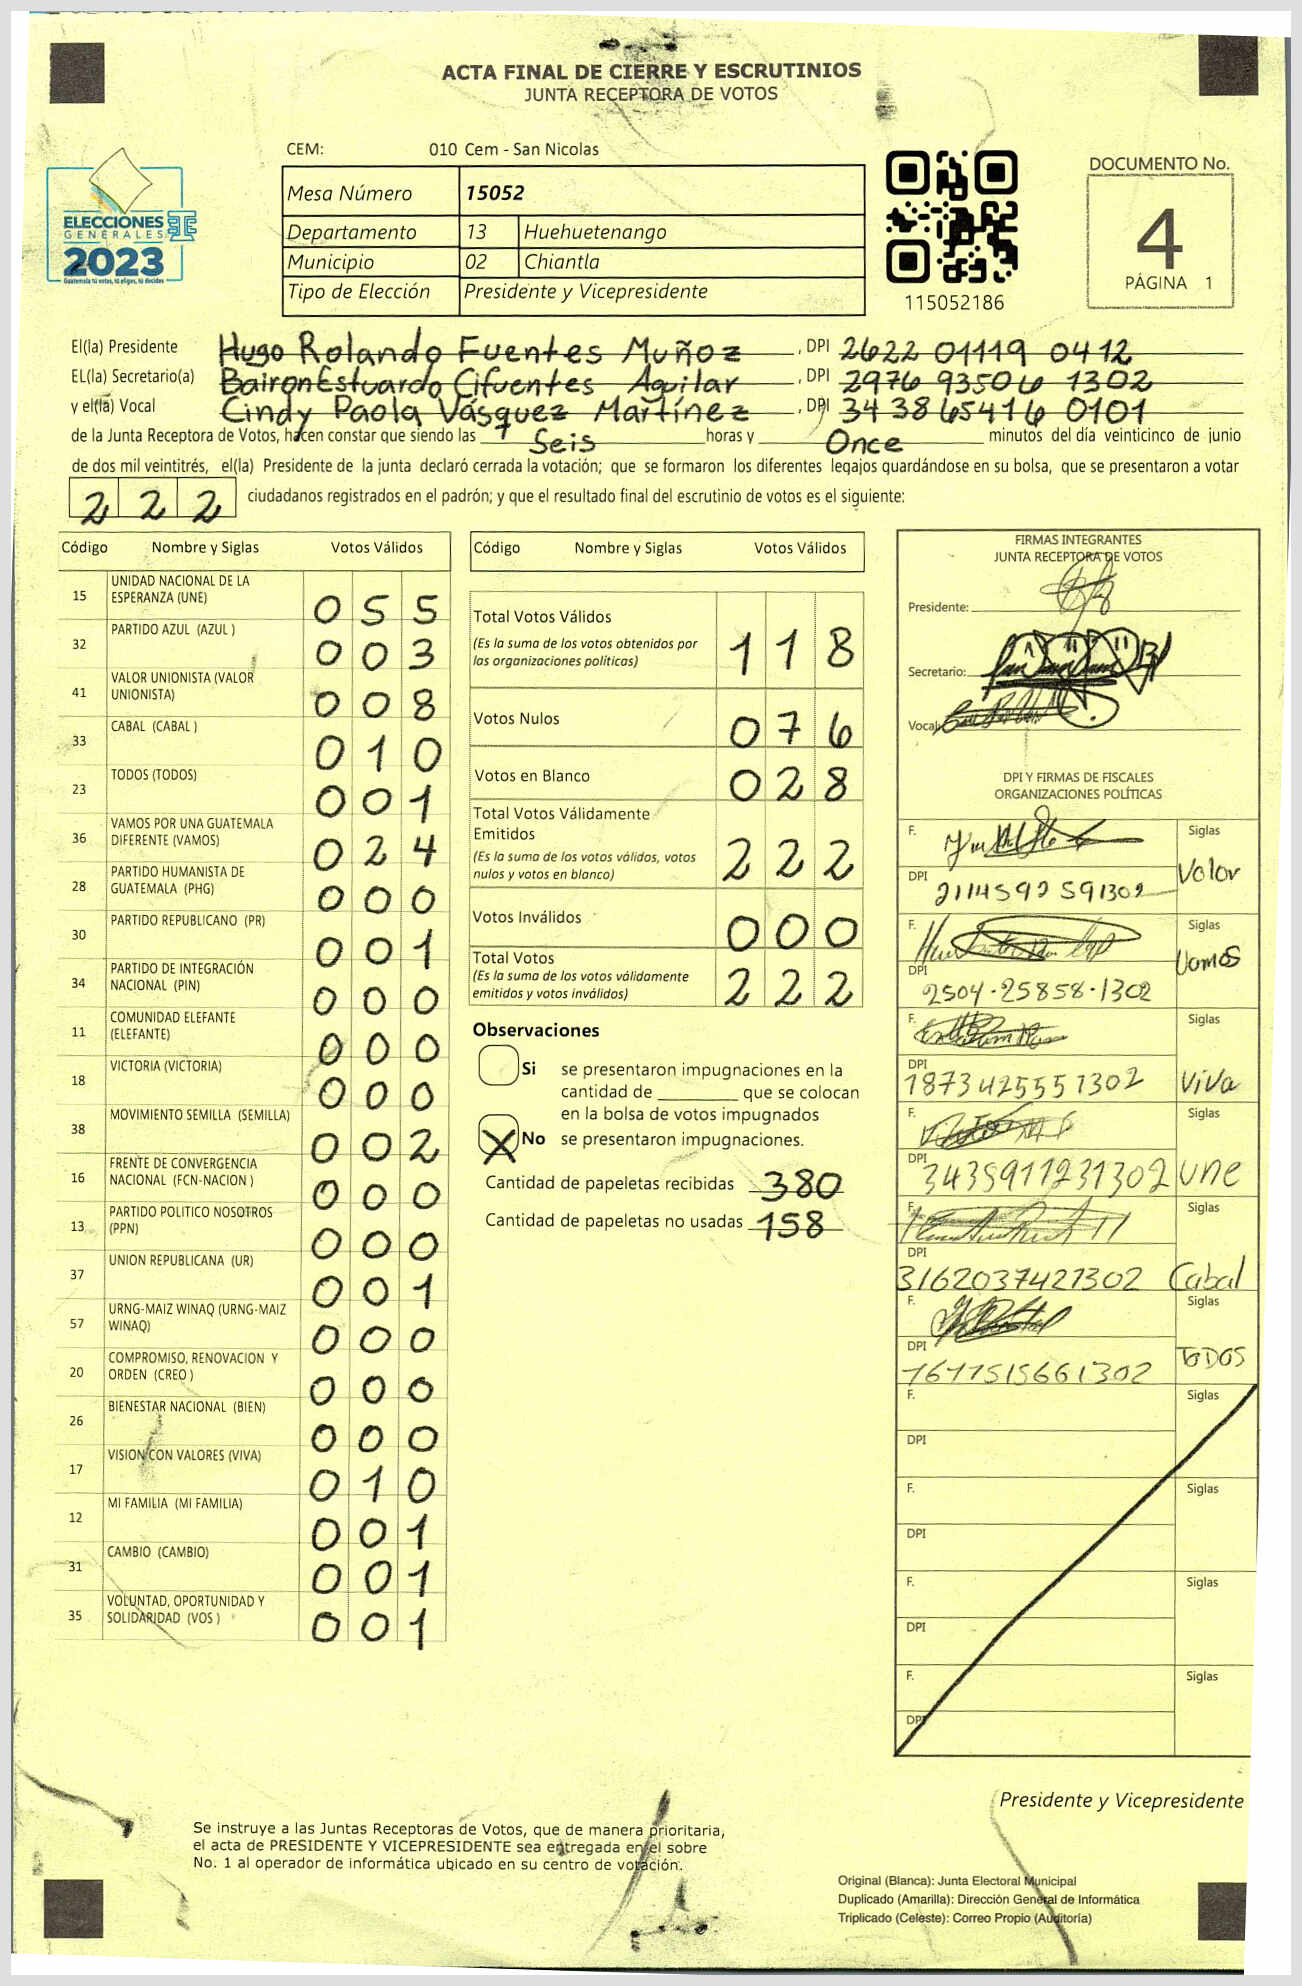 ACTA FINAL DE CIERRE Y ESCRUTINIOS
JUNTA RECEPTORA DE VOTOS
CEM: 010 Cem - San Nicolas
Mesa Número 15052
Departamento 13 Huehuetenango
Municipio 02 Chiantla
Tipo de Elección Presidente y Vicepresidente
ELECCIONES
GENERALES
2023
Guatemala tú votas, tú eliges, tú decides
115052186
DOCUMENTO No.
4
PÁGINA 1
El(la) Presidente Hugo Rolando Fuentes Muñoz , DPI 2622 01119 0412
EL(la) Secretario(a) Bairon Estuardo Cifuentes Aguilar , DPI 2976 93506 1302
y el(la) Vocal Cindy Paola Vásquez Martínez , DPI 3438 65416 0101
de la Junta Receptora de Votos, hacen constar que siendo las Seis horas y Once minutos del día veinticinco de junio
de dos mil veintitrés, el(la) Presidente de la junta declaró cerrada la votación; que se formaron los diferentes legajos quardándose en su bolsa, que se presentaron a votar
2 2 2 ciudadanos registrados en el padrón; y que el resultado final del escrutinio de votos es el siguiente:
Código Nombre y Siglas Votos Válidos
15 UNIDAD NACIONAL DE LA ESPERANZA (UNE) 0 5 5
32 PARTIDO AZUL (AZUL ) 0 0 3
41 VALOR UNIONISTA (VALOR UNIONISTA) 0 0 8
33 CABAL (CABAL ) 0 1 0
23 TODOS (TODOS) 0 0 1
36 VAMOS POR UNA GUATEMALA DIFERENTE (VAMOS) 0 2 4
28 PARTIDO HUMANISTA DE GUATEMALA (PHG) 0 0 0
30 PARTIDO REPUBLICANO (PR) 0 0 1
34 PARTIDO DE INTEGRACIÓN NACIONAL (PIN) 0 0 0
11 COMUNIDAD ELEFANTE (ELEFANTE) 0 0 0
18 VICTORIA (VICTORIA) 0 0 0
38 MOVIMIENTO SEMILLA (SEMILLA) 0 0 2
16 FRENTE DE CONVERGENCIA NACIONAL (FCN-NACION ) 0 0 0
13 PARTIDO POLITICO NOSOTROS (PPN) 0 0 0
37 UNION REPUBLICANA (UR) 0 0 1
57 URNG-MAIZ WINAQ (URNG-MAIZ WINAQ) 0 0 0
20 COMPROMISO, RENOVACION Y ORDEN (CREO ) 0 0 0
26 BIENESTAR NACIONAL (BIEN) 0 0 0
17 VISION CON VALORES (VIVA) 0 1 0
12 MI FAMILIA (MI FAMILIA) 0 0 1
31 CAMBIO (CAMBIO) 0 0 1
35 VOLUNTAD, OPORTUNIDAD Y SOLIDARIDAD (VOS ) 0 0 1
Código Nombre y Siglas Votos Válidos
Total Votos Válidos 1 1 8
(Es la suma de los votos obtenidos por
las organizaciones políticas)
Votos Nulos 0 7 6
Votos en Blanco 0 2 8
Total Votos Válidamente
Emitidos 2 2 2
(Es la suma de los votos válidos, votos
nulos y votos en blanco)
Votos Inválidos 0 0 0
Total Votos 2 2 2
(Es la suma de los votos válidamente
emitidos y votos inválidos)
Observaciones
Si se presentaron impugnaciones en la
cantidad de ________ que se colocan
en la bolsa de votos impugnados
X No se presentaron impugnaciones.
Cantidad de papeletas recibidas 380
Cantidad de papeletas no usadas 158
FIRMAS INTEGRANTES
JUNTA RECEPTORA DE VOTOS
Presidente:
Secretario:
Vocal:
DPI Y FIRMAS DE FISCALES
ORGANIZACIONES POLÍTICAS
F. Siglas
DPI 2114592591302 Valor
F. Siglas
DPI 2504-25858-1302 Vamos
F. Siglas
DPI 1873425551302 ViVa
F. Siglas
DPI 3435911231302 UNe
F. Siglas
DPI 3162037421302 Cabal
F. Siglas
DPI 1617515661302 ToDOS
F. Siglas
DPI
F. Siglas
DPI
F. Siglas
DPI
F. Siglas
DPI
Presidente y Vicepresidente
Se instruye a las Juntas Receptoras de Votos, que de manera prioritaria,
el acta de PRESIDENTE Y VICEPRESIDENTE sea entregada en el sobre
No. 1 al operador de informática ubicado en su centro de votación.
Original (Blanca): Junta Electoral Municipal
Duplicado (Amarilla): Dirección General de Informática
Triplicado (Celeste): Correo Propio (Auditoría)